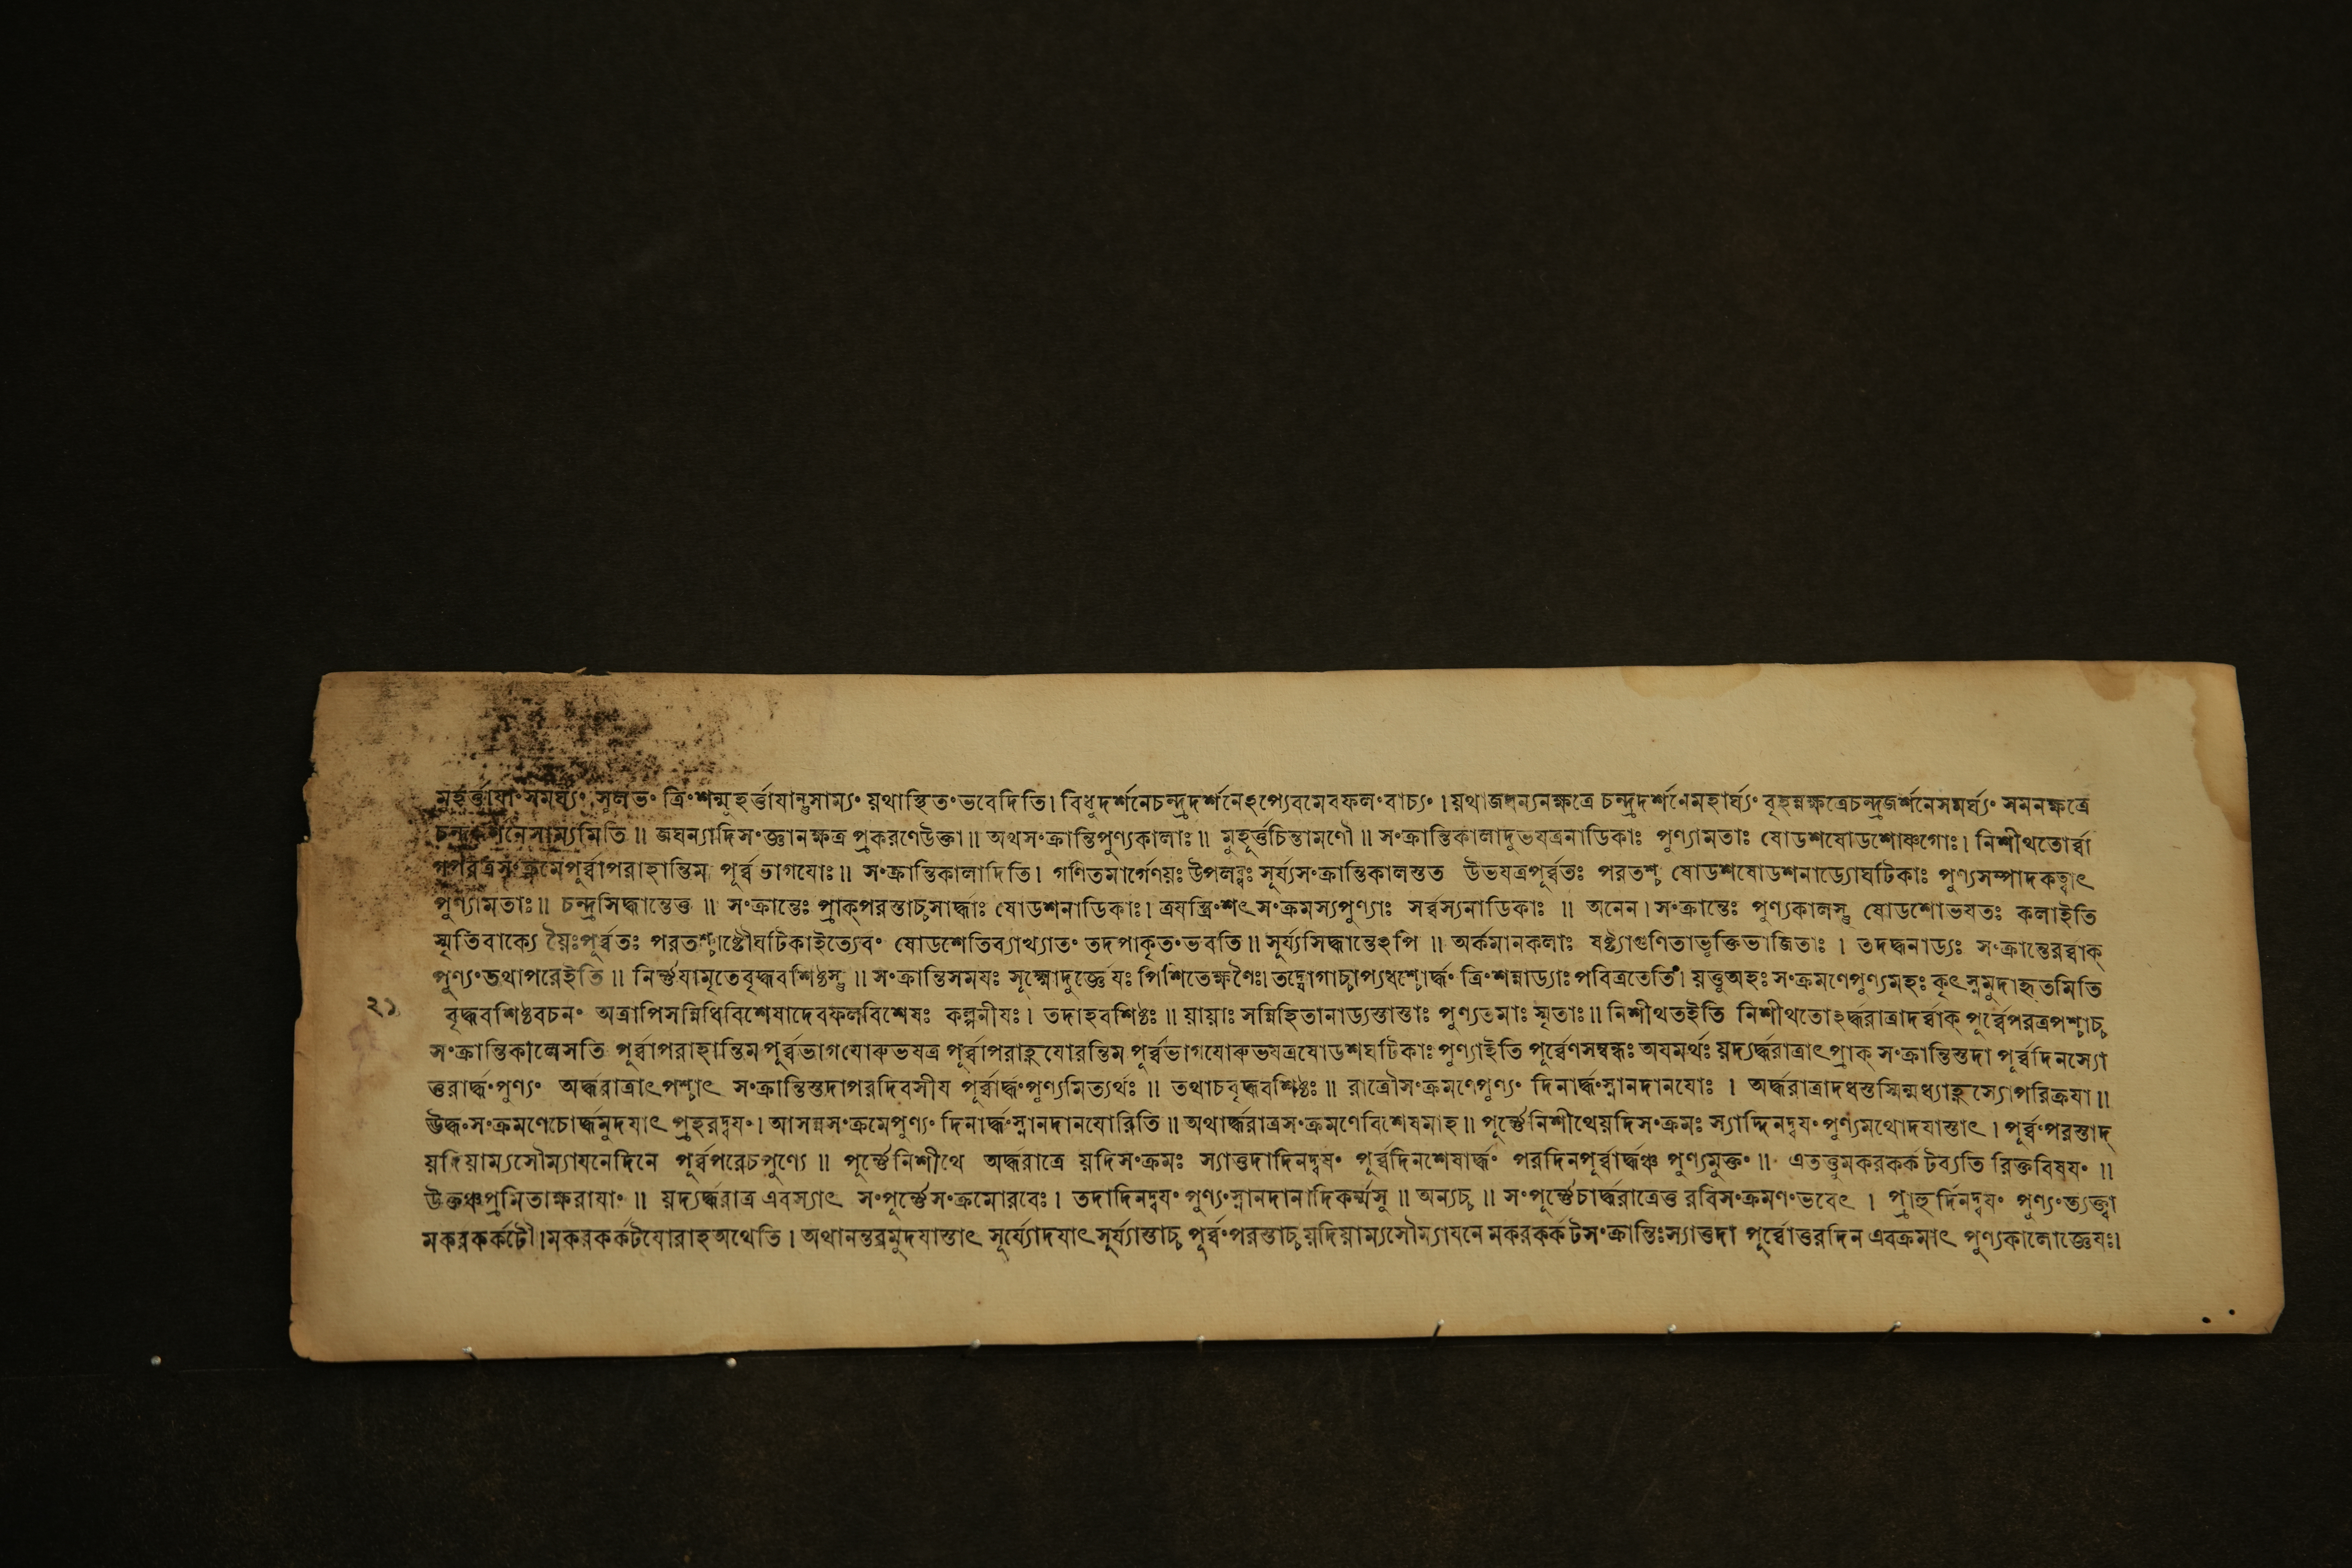 মুহূর্ত্তাযাং সমর্ঘ্যং সুলভং ত্রিংশন্মুহূর্ত্তাযান্তুসাম্যং য়থাস্থিতং ভবেদিতি। বিধুদর্শনেচন্দ্রদর্শনেঽপ্যেবমেবফলং বাচ্যং । য়থাজঘন্যনক্ষত্রে চন্দ্রদর্শনেমহার্ঘ্যং বৃহন্নক্ষত্রেচন্দ্রজর্শনেসমর্ঘ্যং সমনক্ষত্রে
চন্দ্রদর্শনেসাম্যমিতি ॥ জঘন্যাদিসংজ্ঞানক্ষত্র প্রকরণেউক্তা ॥ অথসংক্রান্তিপুণ্যকালাঃ ॥ মুহূর্ত্তচিন্তামণৌ ॥ সংক্রান্তিকালাদুভযত্রনাডিকাঃ পুণ্যামতাঃ ষোডশষোডশোষ্ণগোঃ। নিশীথতোর্ব্বা
গপরত্রসংক্রমেপূর্ব্বাপরাহান্তিম পূর্ব্ব ভাগযোঃ ॥ সংক্রান্তিকালাদিতি। গণিতমার্গেণয়ঃ উপলব্ধঃ সূর্য্যসংক্রান্তিকালস্তত উভযত্রপূর্ব্বতঃ পরতশ্চ ষোডশষোডশনাড্যোঘটিকাঃ পুণ্যসম্পাদকত্বাৎ
পুণ্যামতাঃ ॥ চন্দ্রসিদ্ধান্তেত্ত ॥ সংক্রান্তেঃ প্রাক্পরস্তাচ্চসার্দ্ধাঃ ষোডশনাডিকাঃ। ত্রযস্ত্রিংশৎসংক্রমস্যপুণ্যাঃ সর্ব্বস্যনাডিকাঃ ॥ অনেন। সংক্রান্তেঃ পুণ্যকালস্তু ষোডশোভযতঃ কলাইতি
স্মৃতিবাক্যে য়ৈঃপূর্ব্বতঃ পরতশ্চাষ্টৌঘটিকাইত্যেবং ষোডশেতিব্যাখ্যাতং তদপাকৃতংভবতি ॥ সূর্য্যসিদ্ধান্তেঽপি ॥ অর্কমানকলাঃ ষষ্ট্যাগুণিতাভূক্তিভাজিতাঃ । তদর্দ্ধনাড্যঃ সংক্রান্তেরর্ব্বাক্
পুণ্যংতথাপরেইতি ॥ নির্ণ্ণযামৃতেবৃদ্ধবশিষ্ঠস্তু ॥ সংক্রান্তিসময়ঃ সূক্ষ্মোদুর্জ্ঞেযঃ পিশিতেক্ষণৈঃ। তদ্যোগাচ্চাপ্যধশ্চোর্দ্ধং ত্রিংশন্নাড্যাঃ পবিত্রতেতি। য়ত্তুঅহঃ সংক্রমণেপুণ্যমহঃ কৃৎস্নমুদাহৃতমিতি
২১ বৃদ্ধবশিষ্ঠবচনং অত্রাপিসন্নিধিবিশেষাদেবফলবিশেষঃ কল্পনীযঃ। তদাহবশিষ্ঠঃ ॥ য়ায়াঃ সন্নিহিতানাড্যস্তাস্তাঃ পুণ্যতমাঃ স্মৃতাঃ ॥ নিশীথতইতি নিশীথতোঽর্দ্ধরাত্রাদর্ব্বাক্ পূর্ব্বেপরত্রপশ্চাচ্চ
সংক্রান্তিকালেসতি পূর্ব্বাপরাহান্তিম পূর্ব্বভাগযোরুভযত্র পূর্ব্বাপরাহ্ণযোরন্তিম পূর্ব্বভাগযোরুভযত্রষোডশঘটিকাঃ পুণ্যাইতি পূর্ব্বেণসম্বন্ধঃ অযমর্থঃ য়দ্যর্দ্ধরাত্রাৎপ্রাক্ সংক্রান্তিস্তদা পূর্ব্বদিনস্যো
ত্তরার্দ্ধংপুণ্যং অর্দ্ধরাত্রাৎপশ্চাৎ সংক্রান্তিস্তদাপরদিবসীয পূর্ব্বার্দ্ধংপুণ্যমিত্যর্থঃ ॥ তথাচবৃদ্ধবশিষ্ঠঃ ॥ রাত্রৌসংক্রমণেপুণ্যং দিনার্দ্ধংস্নানদানযোঃ । অর্দ্ধরাত্রাদধস্তস্মিন্মধ্যাহ্ণস্যোপরিক্রযা ॥
ঊর্দ্ধংসংক্রমণেচোর্দ্ধমুদযাৎ প্রহরদ্বযং। আসন্নসংক্রমেপুণ্যং দিনার্দ্ধংস্নানদানযোরিতি ॥ অথার্দ্ধরাত্রসংক্রমণেবিশেষমাহ ॥ পূর্ণ্ণেনিশীথেয়দিসংক্রমঃ স্যাদ্দিনদ্বযংপুণ্যমথোদযাস্তাৎ। পূর্ব্বংপরস্তাদ্
য়দিয়াম্যসৌম্যাযনেদিনে পূর্ব্বপরেচপুণ্যে ॥ পূর্ণ্ণেনিশীথে অর্দ্ধরাত্রে য়দিসংক্রমঃ স্যাত্তদাদিনদ্বযং পূর্ব্বদিনশেষার্দ্ধং পরদিনপূর্ব্বার্দ্ধঞ্চ পুণ্যমুক্তং ॥ এতত্তুমকরকর্কটব্যতি রিক্তবিষযং ॥
উক্তঞ্চপ্রমিতাক্ষরাযাং ॥ য়দ্যর্দ্ধরাত্র এবস্যাৎ সংপূর্ণ্ণেসংক্রমোরবেঃ। তদাদিনদ্বযংপুণ্যংস্নানদানাদিকর্ম্মসু ॥ অন্যচ্চ ॥ সংপূর্ণ্ণেচার্দ্ধরাত্রেত্ত রবিসংক্রমণংভবেৎ । প্রাহুর্দিনদ্বযং পুণ্যংত্যক্ত্বা
মকরকর্কটৌ। মকরকর্কটযোরাহঅথেতি। অথানন্তরমুদযাস্তাৎ সূর্য্যোদযাৎসূর্য্যাস্তাচ্চ পূর্ব্বংপরস্তাচ্চয়দিয়াম্যসৌম্যাযনে মকরকর্কটসংক্রান্তিঃস্যাত্তদা পূর্ব্বোত্তরদিন এবক্রমাৎ পুণ্যকালোজ্ঞেযঃ।